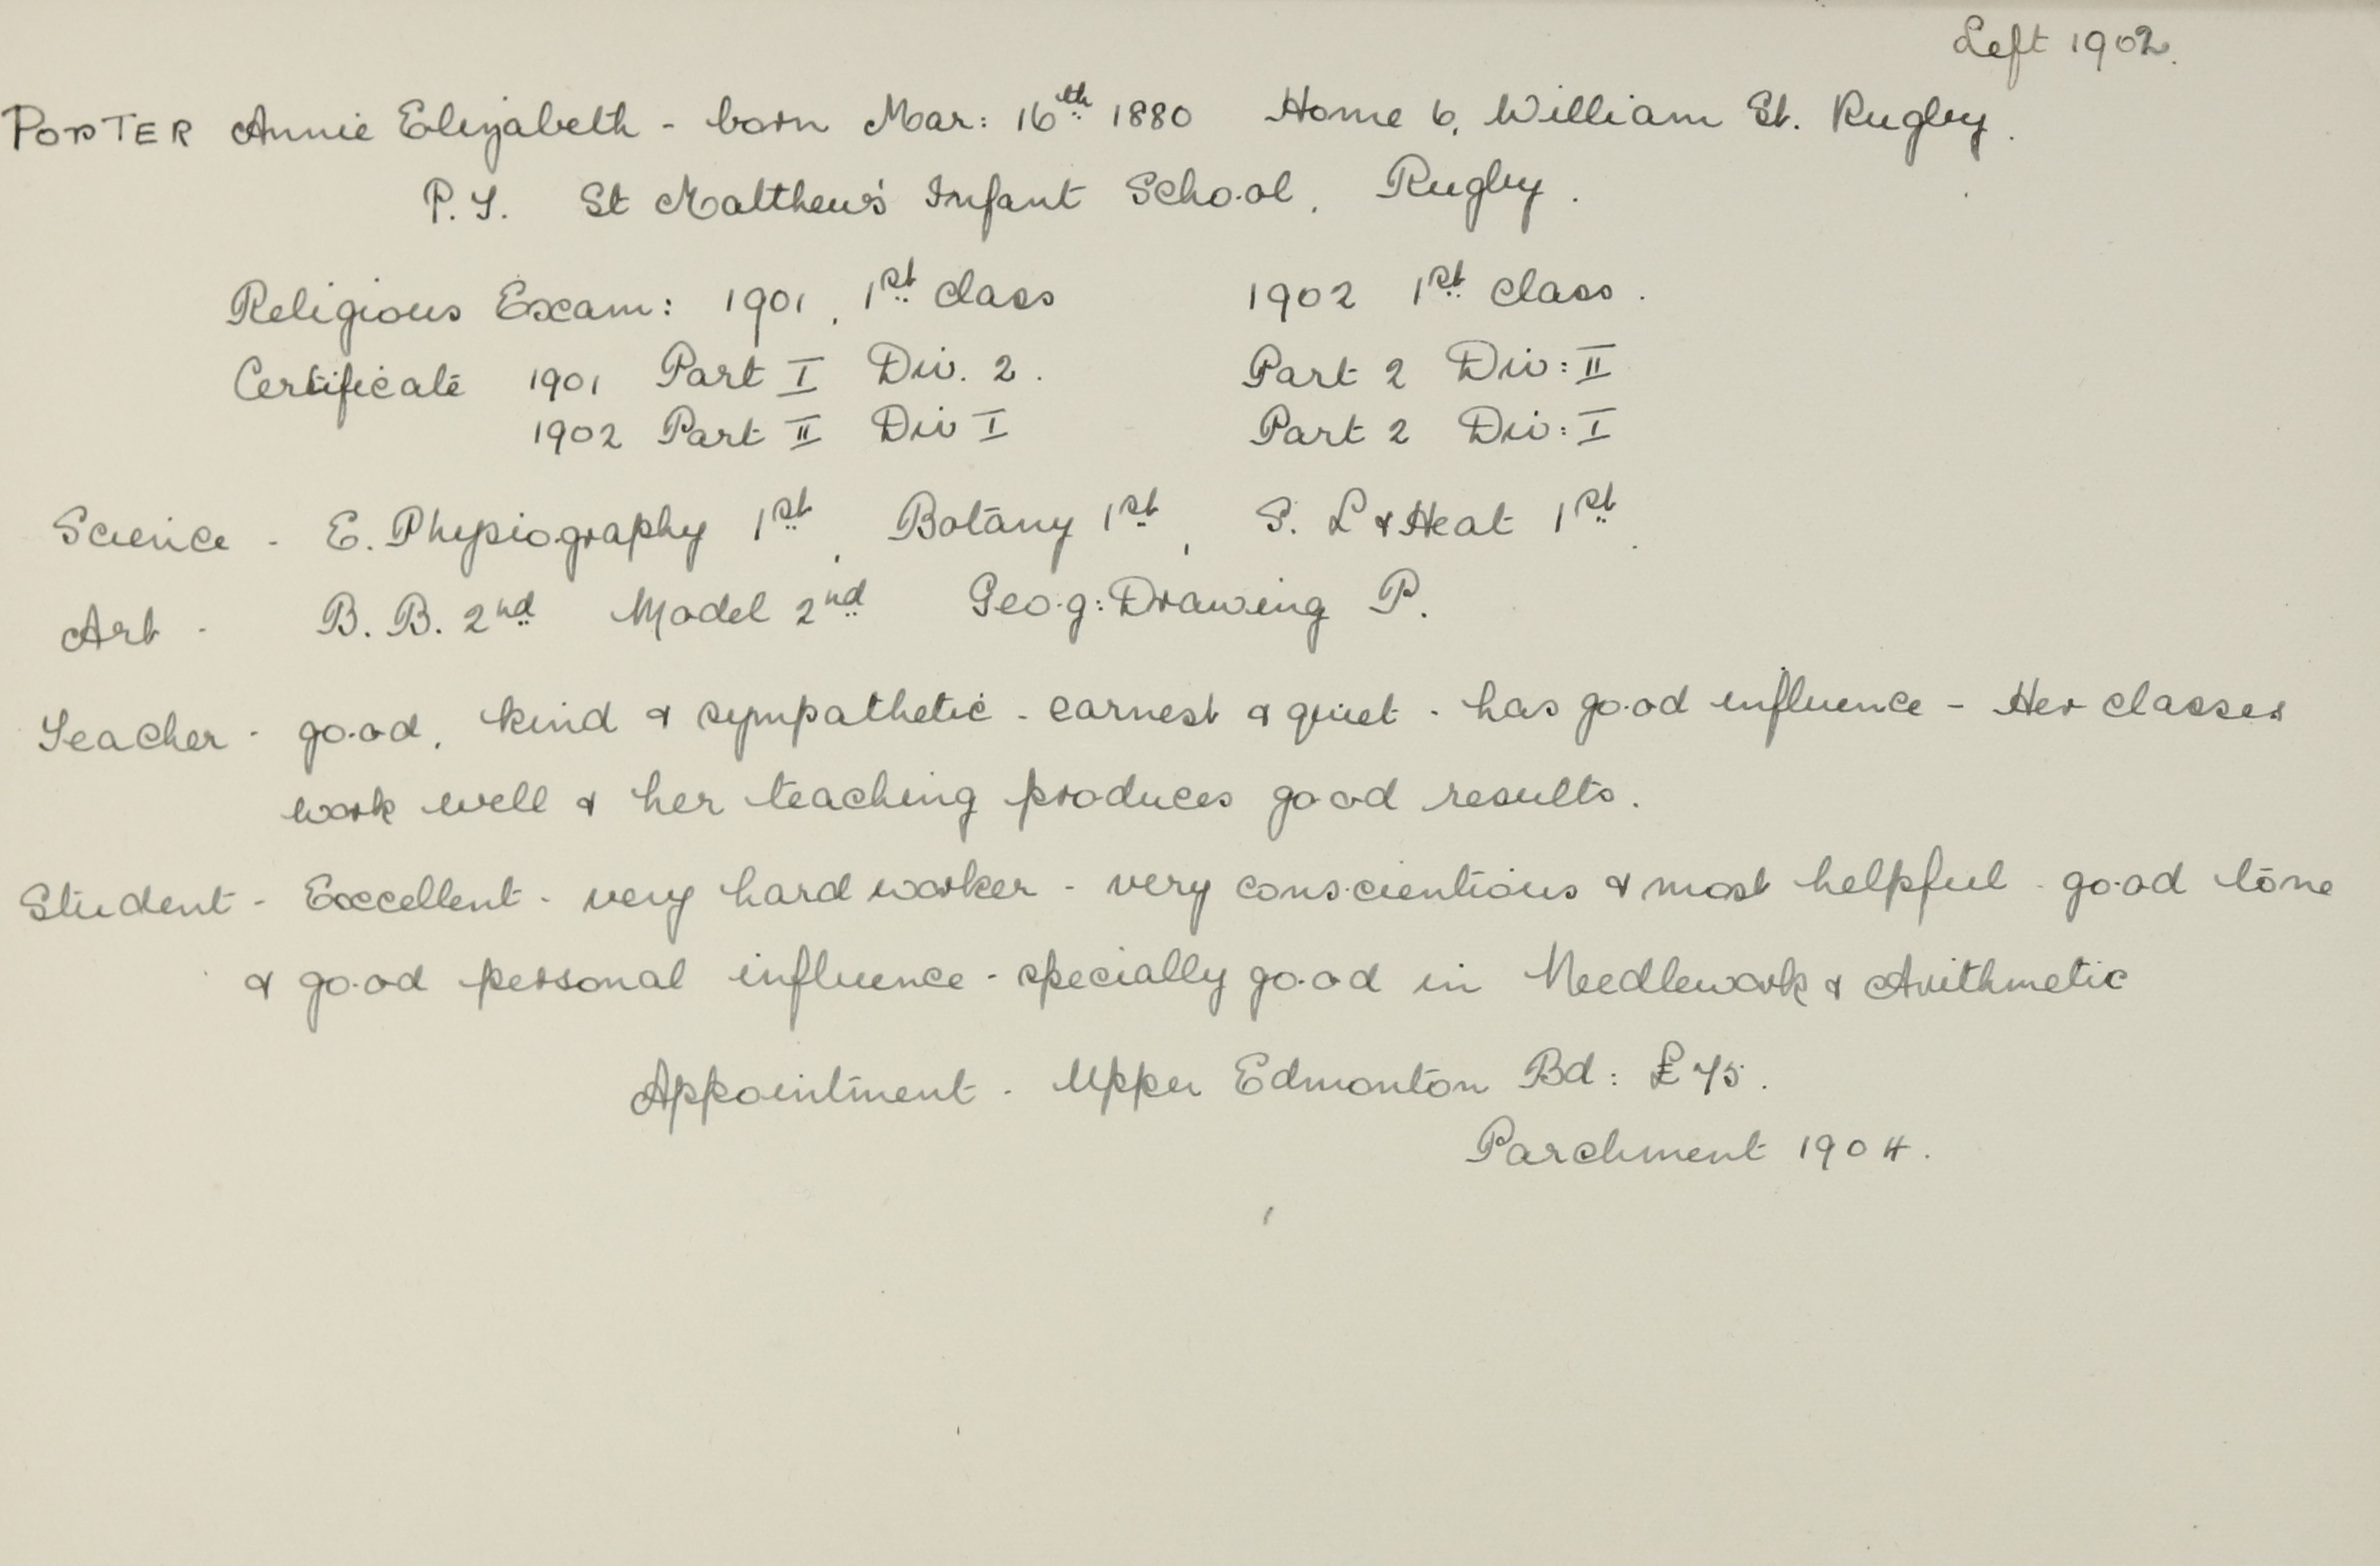 Left 1902.
PORTER Annie Elizabeth - born Mar: 16th 1880 Home 6, William St. Rugby.
P.T. St Matthew's Infant School, Rugby.
Religious Exam: 1901, 1st class 1902 1st class.
Certificate 1901 Part I Div. 2. Part 2 Div: II
1902 Part II Div I Part 2 Div: I
Science - E. Physiography 1st, Botany 1st, S. L & Heat 1st.
Art - B. B. 2nd Model 2nd Geog: Drawing P.
Teacher - good, kind & sympathetic - earnest & quiet - has good influence - Her classes
work well & her teaching produces good results.
Student - Excellent - very hard worker - very conscientious & most helpful - good tone
& good personal influence - specially good in Needlework & Arithmetic
Appointment - Upper Edmonton Bd: £75.
Parchment 1904.